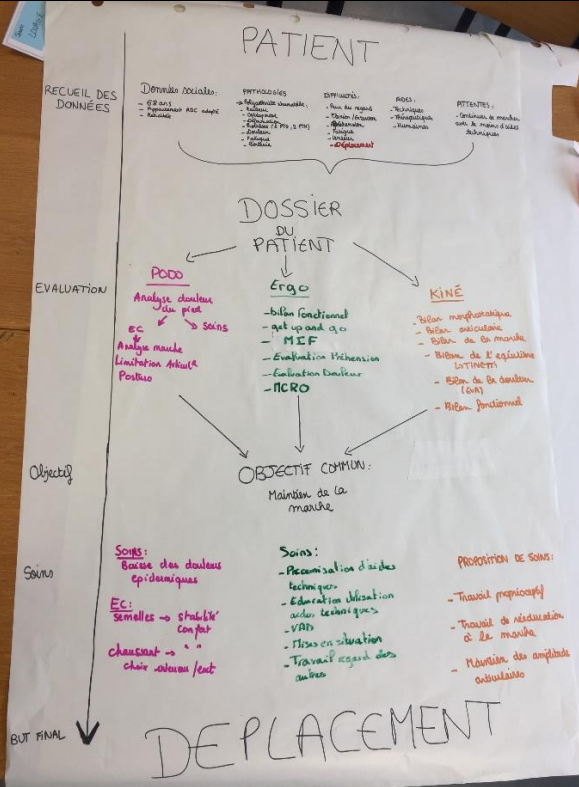 PATIENT
RECUEIL DES
DONNÉES
Données sociales:
- 68 ans
- Appartement RDC adapté
- Retraitée
PATHOLOGIES
Polyarthrite rhumatoïde:
- Raideur
- Déformation
- Douleur
- Fatigue
DIFFICULTÉS
- Peur du regard
- Préhension
- Fatigue
- Déplacement
AIDES:
- Techniques
- Thérapeutique
- Humaines
ATTENTES:
- Continuer de marcher
avec le moins d'aides
techniques
DOSSIER
DU
PATIENT
EVALUATION
PODO
Analyse douleur
du pied
EC
Soins
Analyse marche
Limitation Articul
Posturo
Ergo
- bilan fonctionnel
- get up and go
- MIF
- Evaluation Préhension
- Evaluation Douleur
- MCRO
KINÉ
- Bilan morphostatique
- Bilan articulaire
- Bilan de la marche
- Bilan de l'équilibre
TINETTI
- Bilan de la douleur
(EVA)
- Bilan fonctionnel
Objectif
OBJECTIF COMMUN:
Maintien de la
marche
Soins
SOINS:
Baisse des douleurs
épidermiques
EC:
Semelles → stabilité
confort
chaussant → " "
choix
Soins:
- Préconisation d'aides
techniques
- Education utilisation
aides techniques
- VAD
- Mises en situation
- Travail regard des
autres
PROPOSITION DE SOINS:
- Travail proprioceptif
- Travail de rééducation
à la marche
- Maintien des amplitudes
articulaires
BUT FINAL
DEPLACEMENT